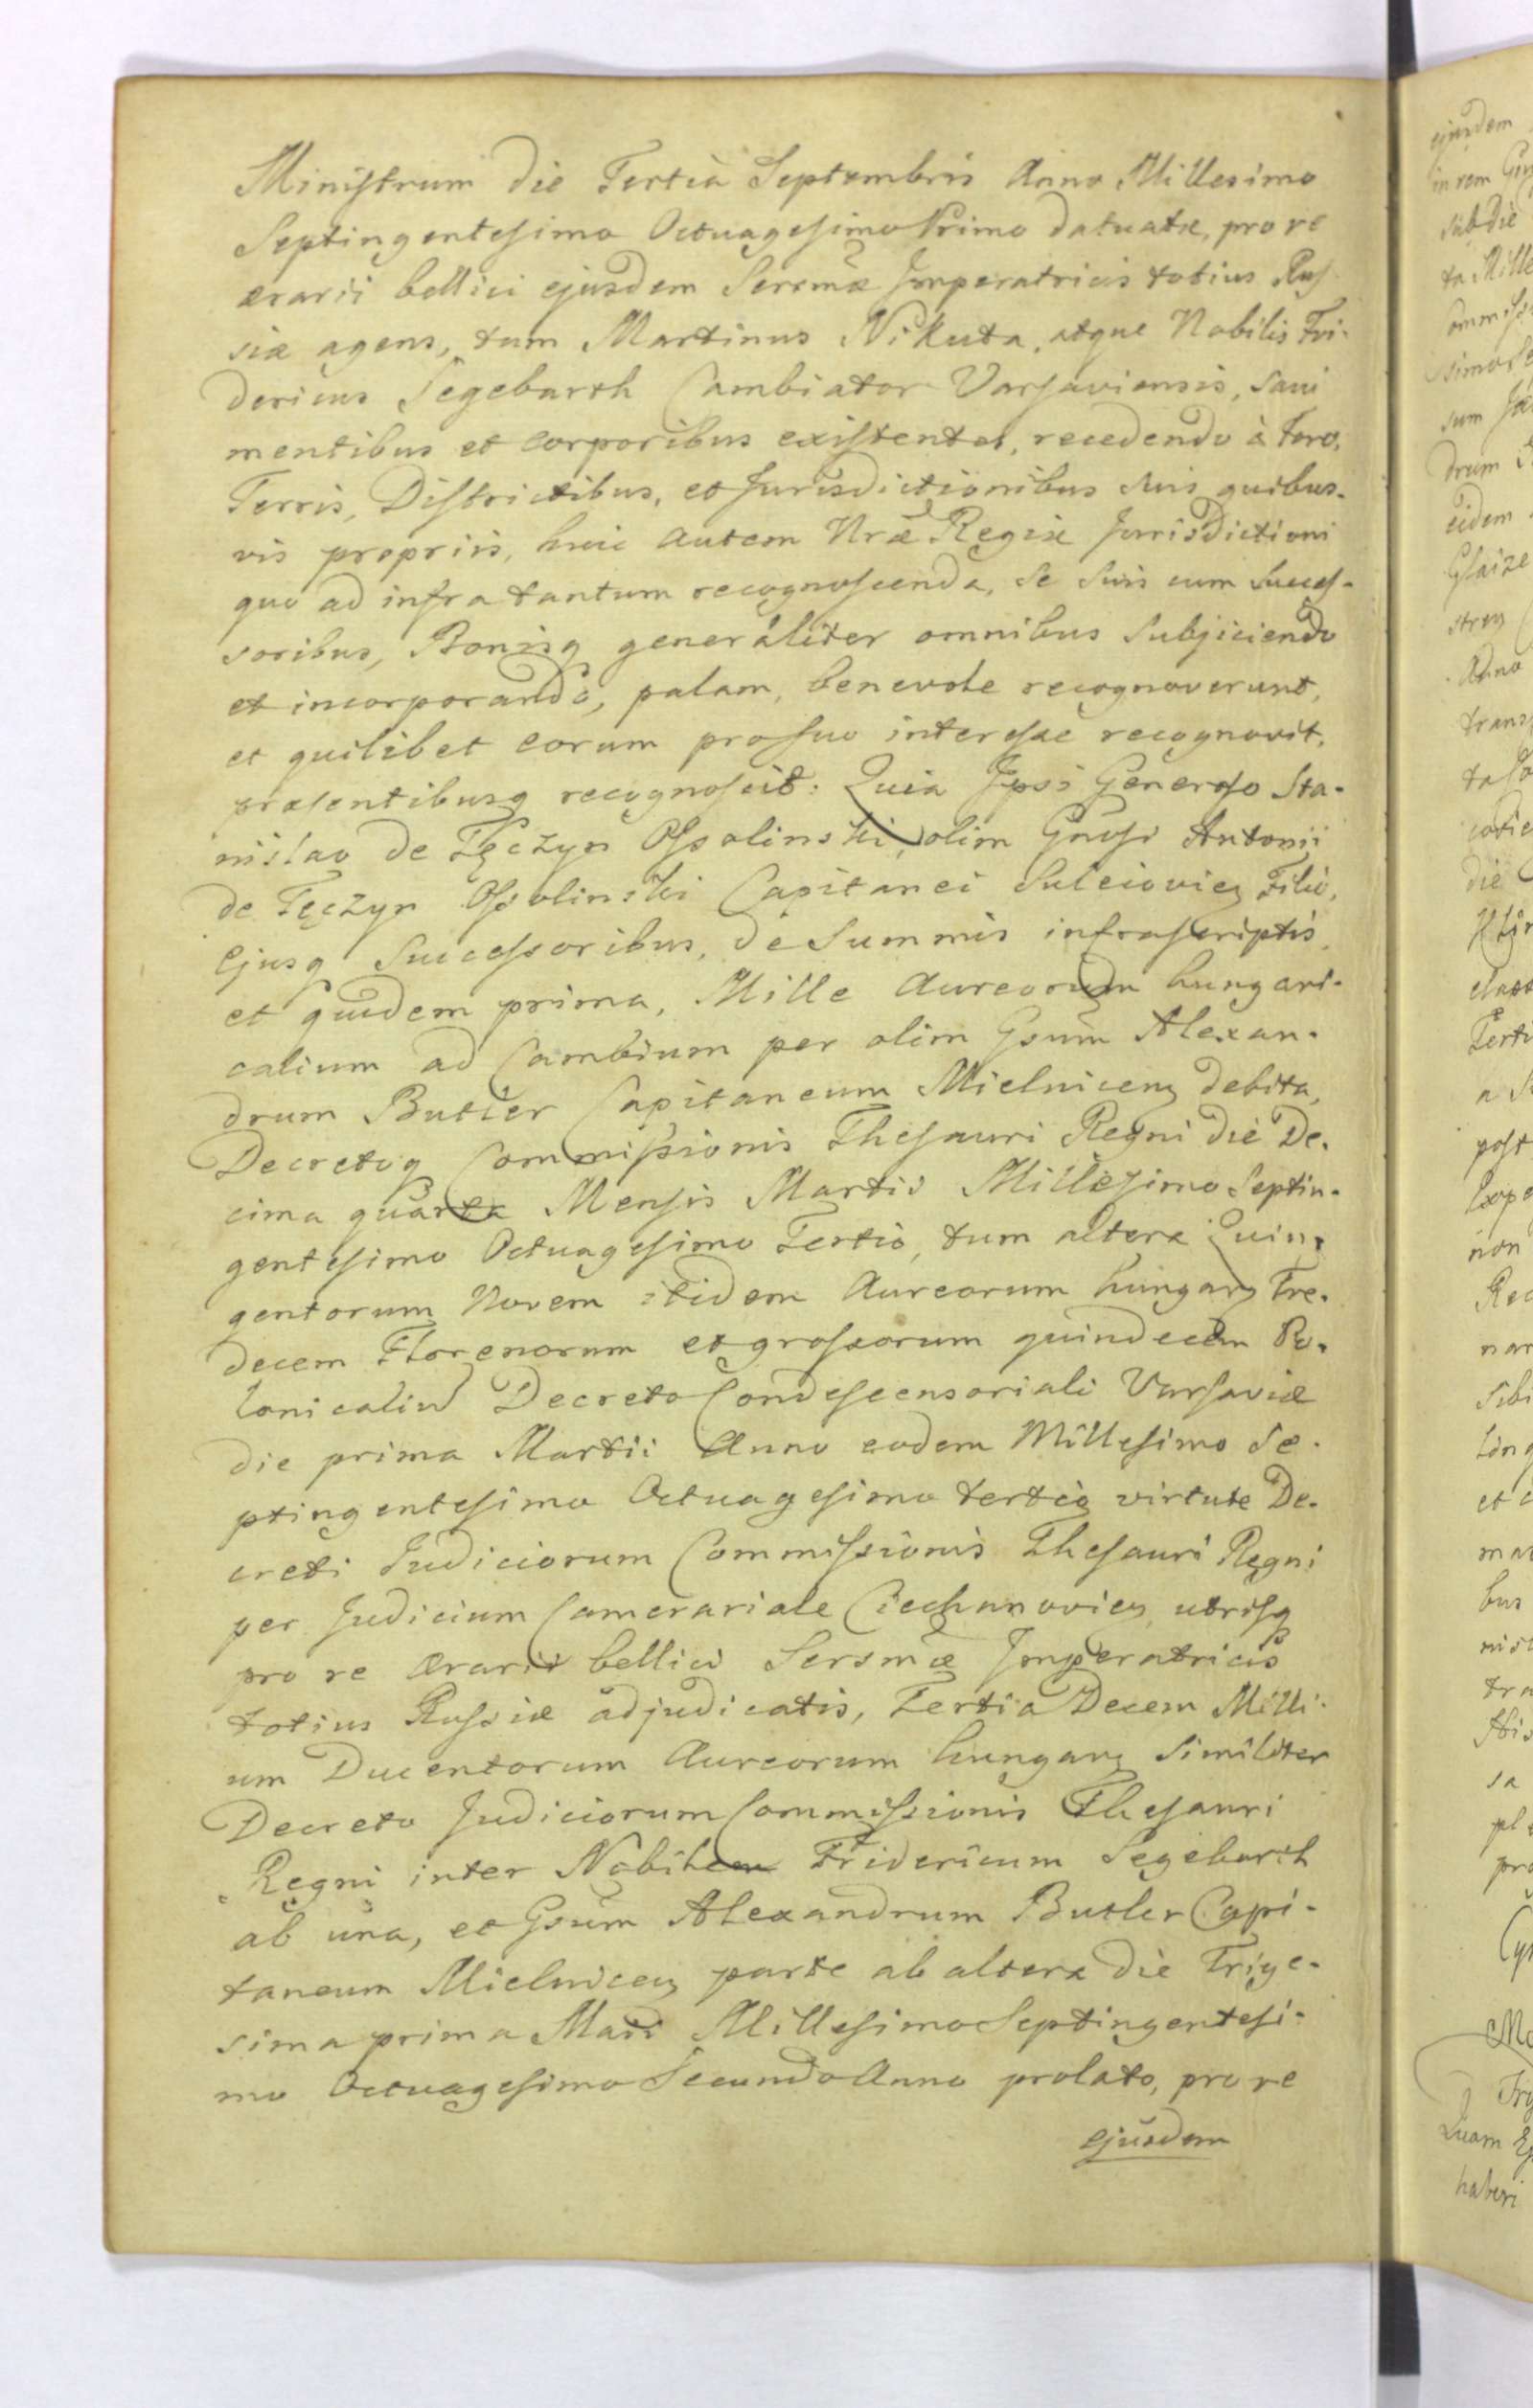 Ministrum die Tertia Septembris Anno Millesimo
Septingentesimo Octuagesimo Primo datuatæ, pro re
ærarii bellici ejusdem Serẽmæ Imperatricis totius Rus
siæ agens, tum Martinus Nikuta, atque Nobilis Fri-
dericus Segebarth Cambiator Varsaviensis, sani
mentibus et corporibus existentes, recedendo à foro,
Terris, Districtibus, et Jurisdictionibus suis quibus-
vis propriis, huic autem Nræ Regiæ Jurisdictioni
quo ad infra tantum recognoscenda, se suis cum succes-
soribus, Bonisq generaliter omnibus subjiciendo
et incorporando, palam, benevole recognoverunt,
et quilibet eorum pro suo interesse recognovit,
præsentibusq recognoscit: Quia Ipsi Generoso Sta-
nislao de Tęczyn Ossolinski, olim Gnosi Antonii
de Tęczyn Ossolinski Capitanei Sulejovien Filio,
Ejusq Successoribus, de Summis infrascriptis,
et quidem prima, Mille Aureorum hungari-
calium ad Cambium per olim Gsum Alexan-
drum Butler Capitaneum Mielnicen debita,
Decretoq Commissionis Thesauri Regni die De-
cima quarta Mensis Martii Millesimo Septin-
gentesimo Octuagesimo Tertio, tum altera Quin-
gentorum Novem itidem Aureorum hungar Tre-
decem Florenorum et grossorum quindecem Po-
lonicaliu Decreto Condescensoriali Varsaviæ
die prima Martii Anno eodem Millesimo Se-
ptingentesimo Octuagesimo tertio virtute De-
creti Judiciorum Commissionis Thesauri Regni
per Judicium Camerariale Ciechanovien utrisq
pro re ærarii bellici Sersmæ Imperatricis
totius Russiæ adjudicatis, Tertia Decem Milli-
um Ducentorum Aureorum hungar similiter
Decreto Judiciorum Commissionis Thesauri
Regni inter Nobilem Fridericum Segebarth
ab una, et Gsum Alexandrum Butler Capi-
taneum Mielnicen parte ab altera die Trige-
sima prima Maii Millesimo Septingentesi-
mo Octuagesimo Secundo Anno prolato, pro re
ejusdem